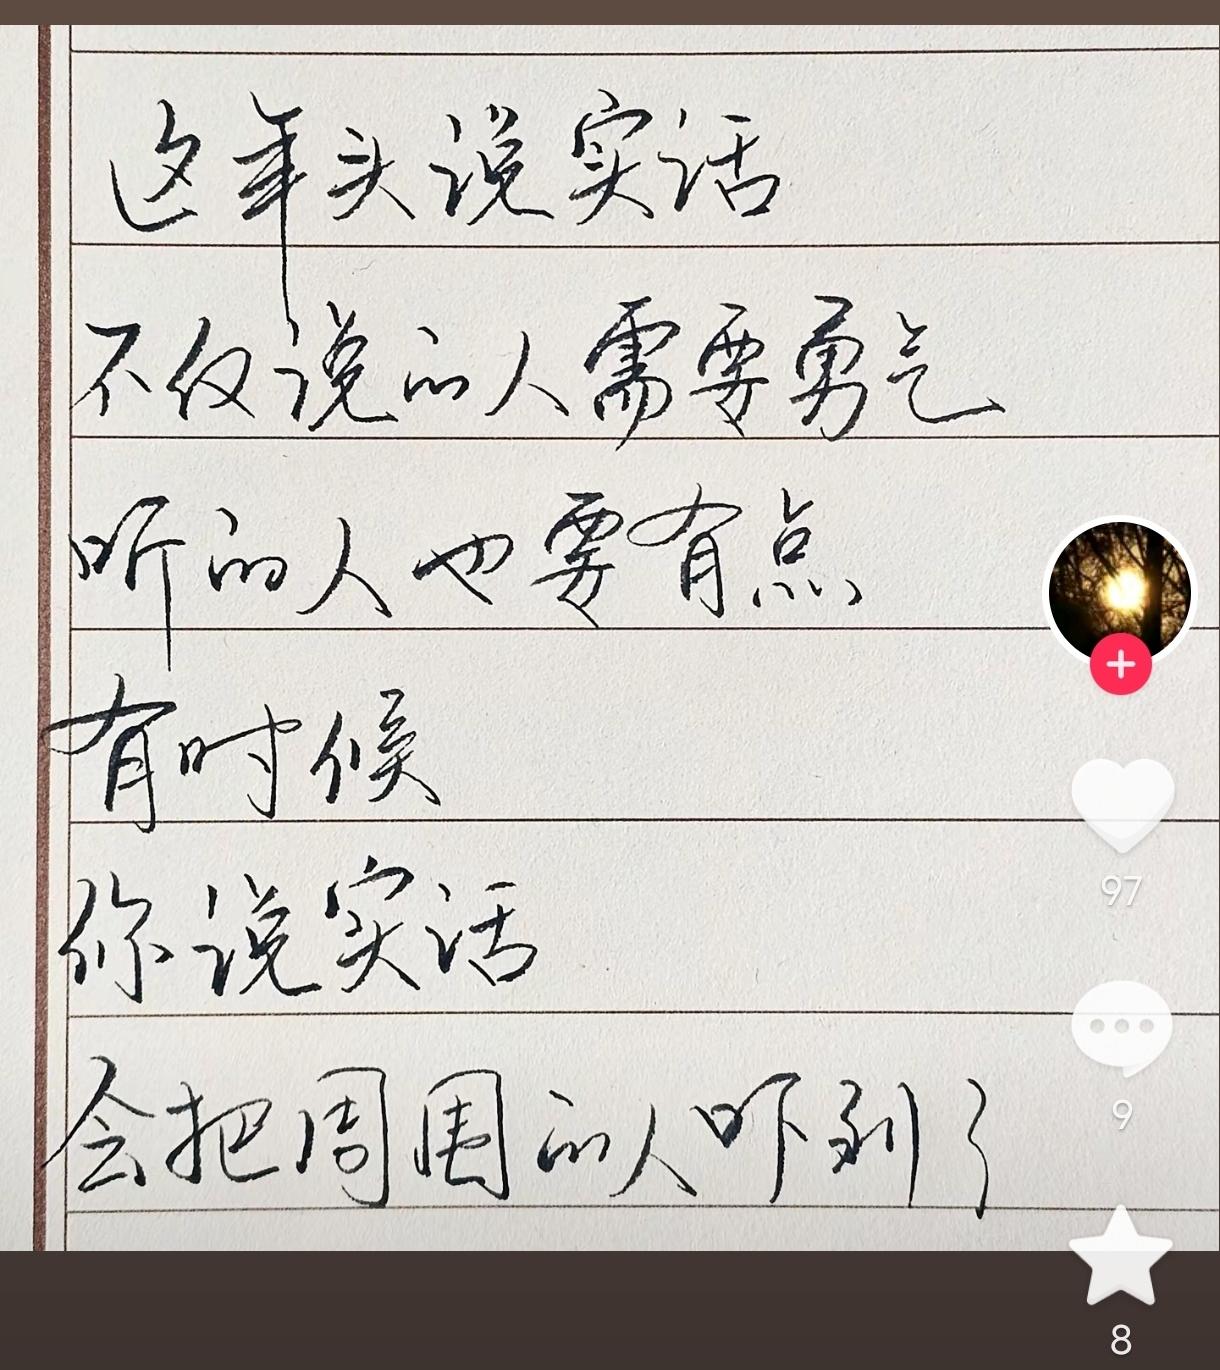 这年头说实话
不仅说的人需要勇气
听的人也要有点
有时候
你说实话
会把周围的人吓到了
97
9
8